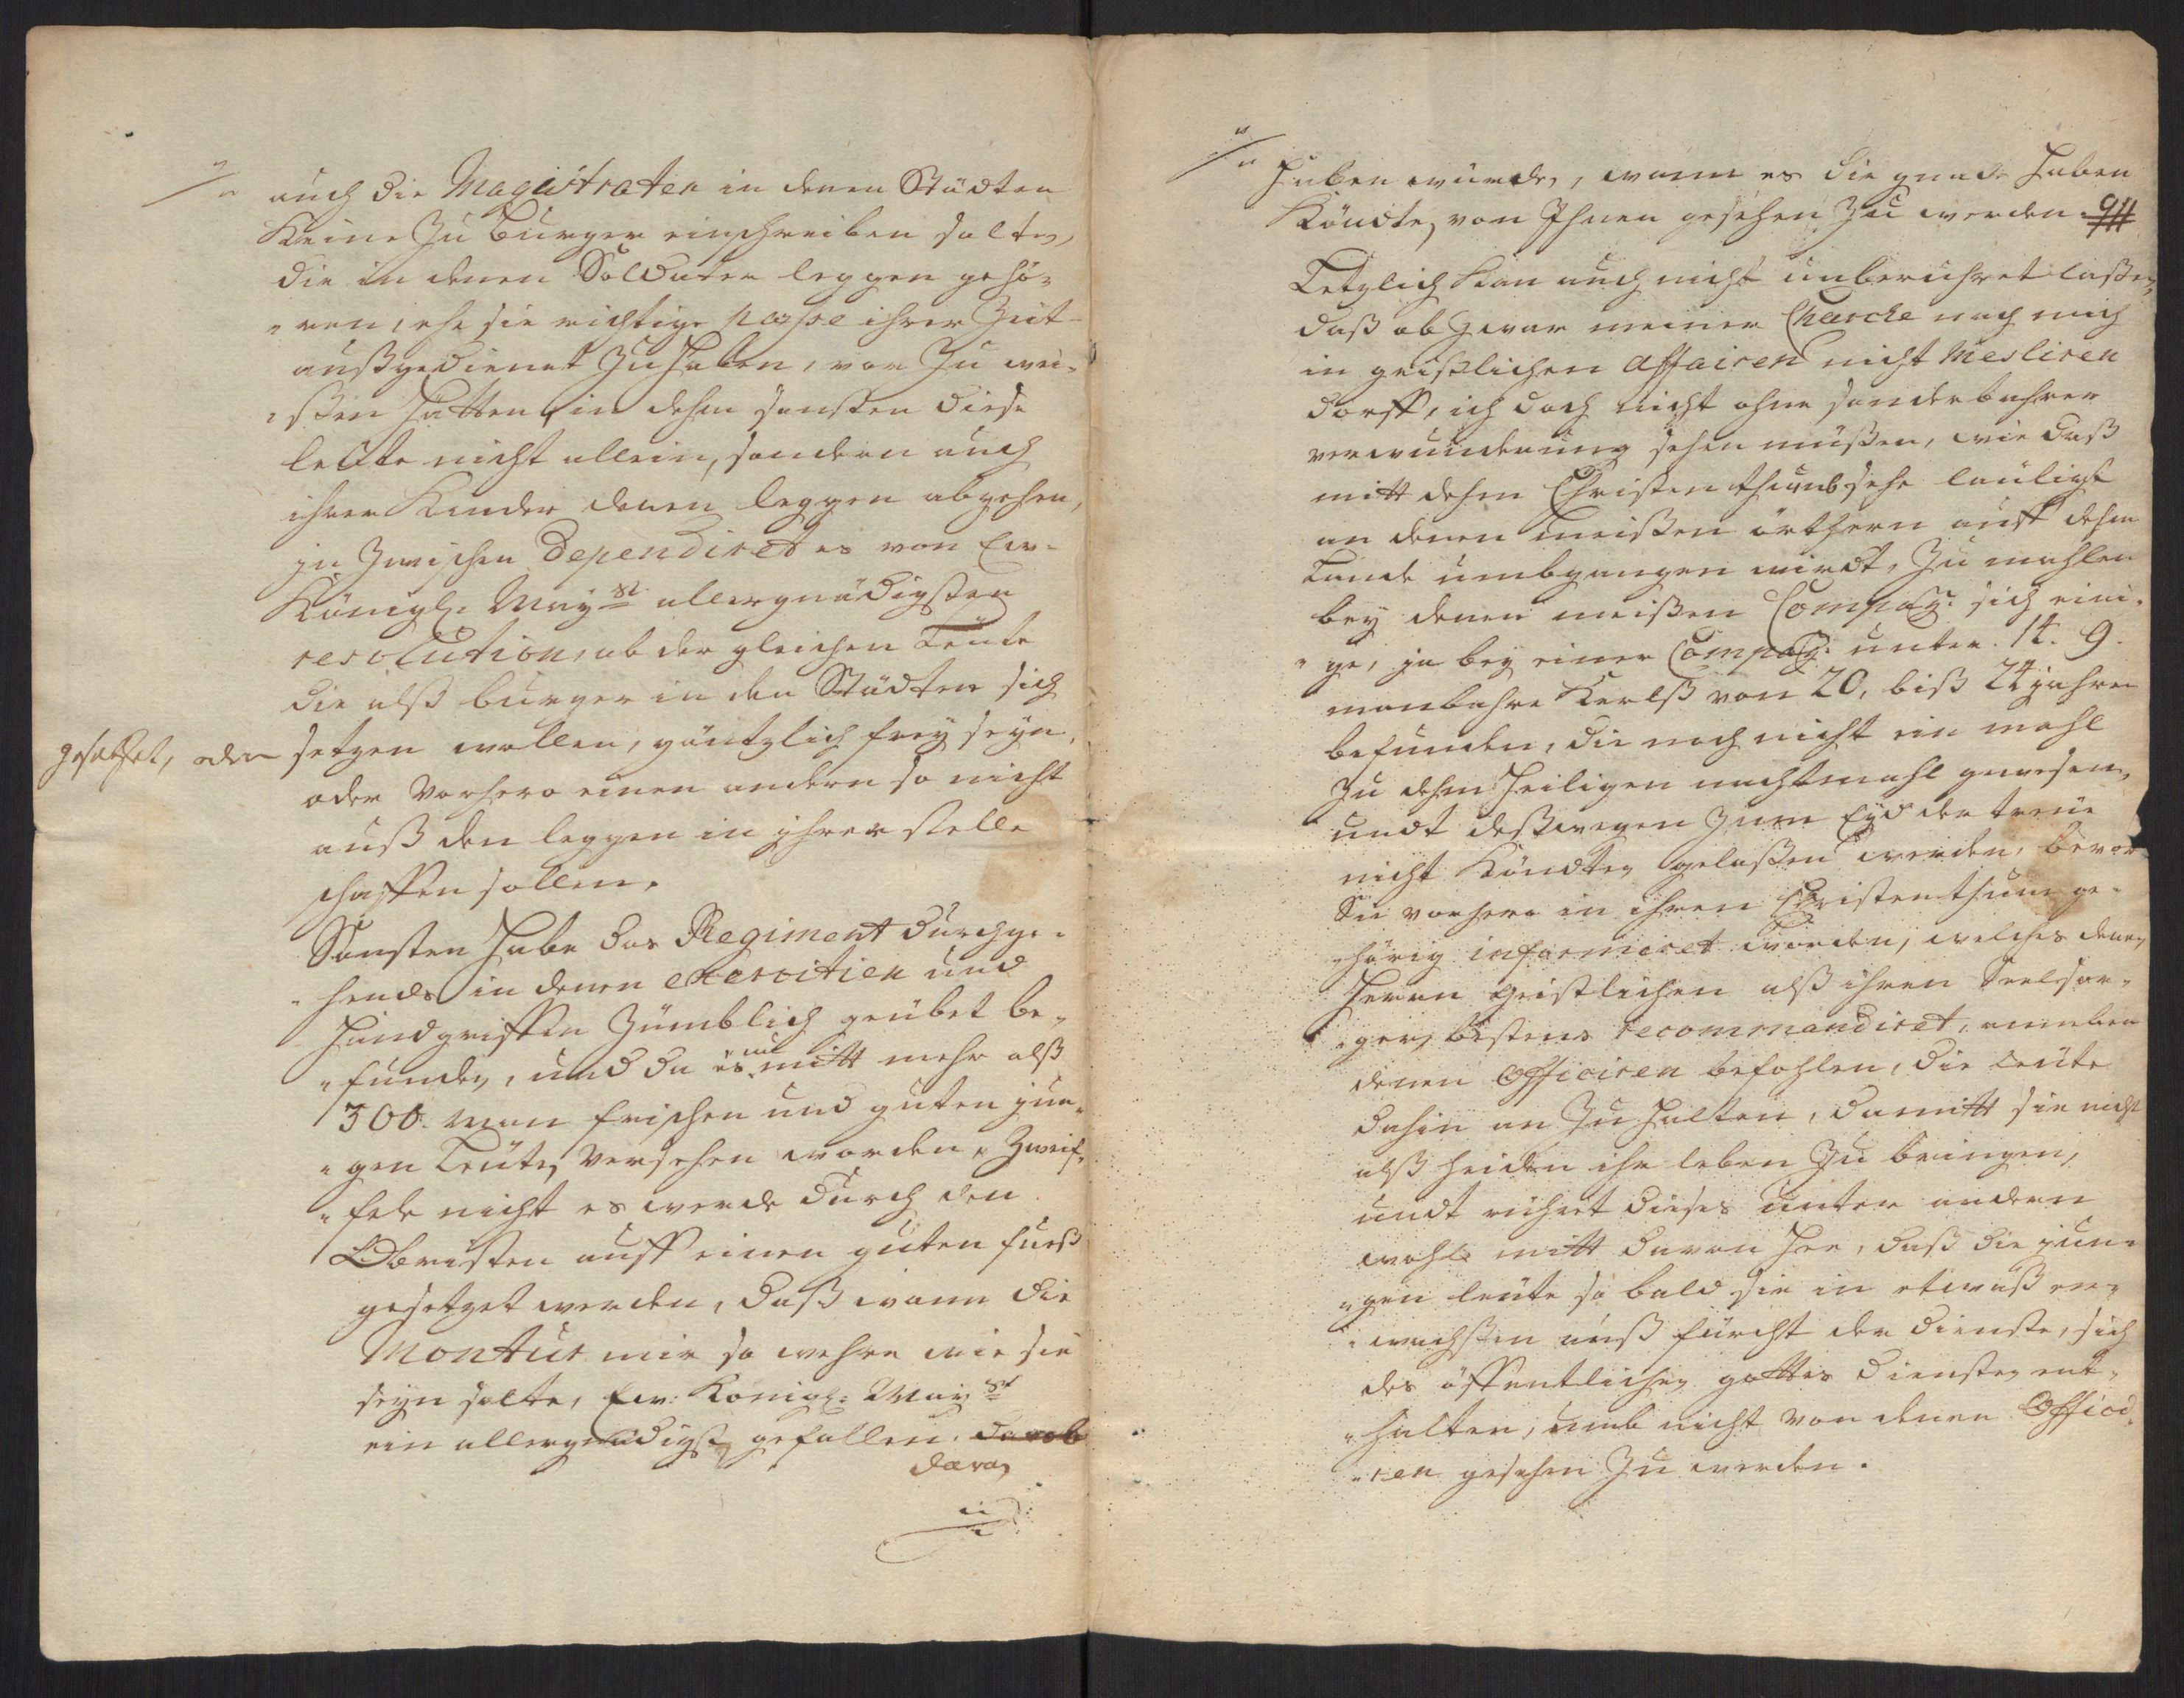 auch die Magistraten in denen Städten
Keine zu Burger einschreiben solte,
die in denen Soldaten leggen gehö-
ren, ehe sie richtige passe ihrer Zeit
außgedienet zu haben, vor zu wei-
ßen hatten, in dehm sonsten diese
leute nicht allein, sondern auch
ihrer Kinder denen leggen abgehen,
in Zwischen dependiret es von Ew.
Königl. Mayst allergnädigsten
resolution, ob der gleichen Leute
die alß burger in den Städten sich
gesetzet, oder
setzen wollen, gäntzlich frey seyn,
oder vorhero einen andern so nicht
auß den leggen in ihrer stelle
schaffen sollen.
Sonsten habe das Regiment durchge-
hends in denen exercitien und
handgriffen Zümblich geübet be-
funden, und da es nu mitt mehr alß
300. man frischen und guten jun-
gen Leuten versehen worden, Zweif-
fele nicht es werde durch den
Obristen auff einen guten fueß
gesetzet werden, daß wann die
Montur nur so wehre wie sie
seyn solte, Ew: Königl: Mayst
ein allergnädigst gefallen. darob
daran
haben würde, wann es die gnade haben
Köndte, von Ihnen gesehen zu werden
Letzlich kan auch nicht unberühret laßen,
daß ob zwar meiner Charche nach mich
in geistlichen affairen nicht mesliren
dorff, ich doch nicht ohne sonderbahrer
verwunderung sehen müßen, wie daß
mitt dehm Christenthumb sehr laulich
an denen meisten örthern auff dehm
Lande umbgangen wirdt, Zu mahlen
bey denen meisten Compag: sich eini-
ge, ja bey einer Compag: unter 14. 9.
manbahre Kerlß von 20, biß 24 jahren
befunden, die noch nicht ein mahl
zu dehm heiligen nachtmahl gewesen,
undt deßwegen zum Eyd der treue
nicht Köndten gelaßen werden, bevor
Sie vorhero in ihren Christenthum ge-
hörig informiret worden, welches denen
Herrn geistlichen alß ihren Seelsor-
gern bestens recommandiret, anneben
denen Officiren befohlen, die leute
dahin an zu halten, damitt sie nicht
alß heiden ihr leben zu bringen,
undt rühret dieses unter andern
wohl mitt davon her, daß die jun-
gen leute so bald sie in etwaß er-
wachsen auß furcht der dienste, sich
des öffentlichen gottes diensten ent-
halten, umb nicht von denen Offici-
ren gesehen zu werden.